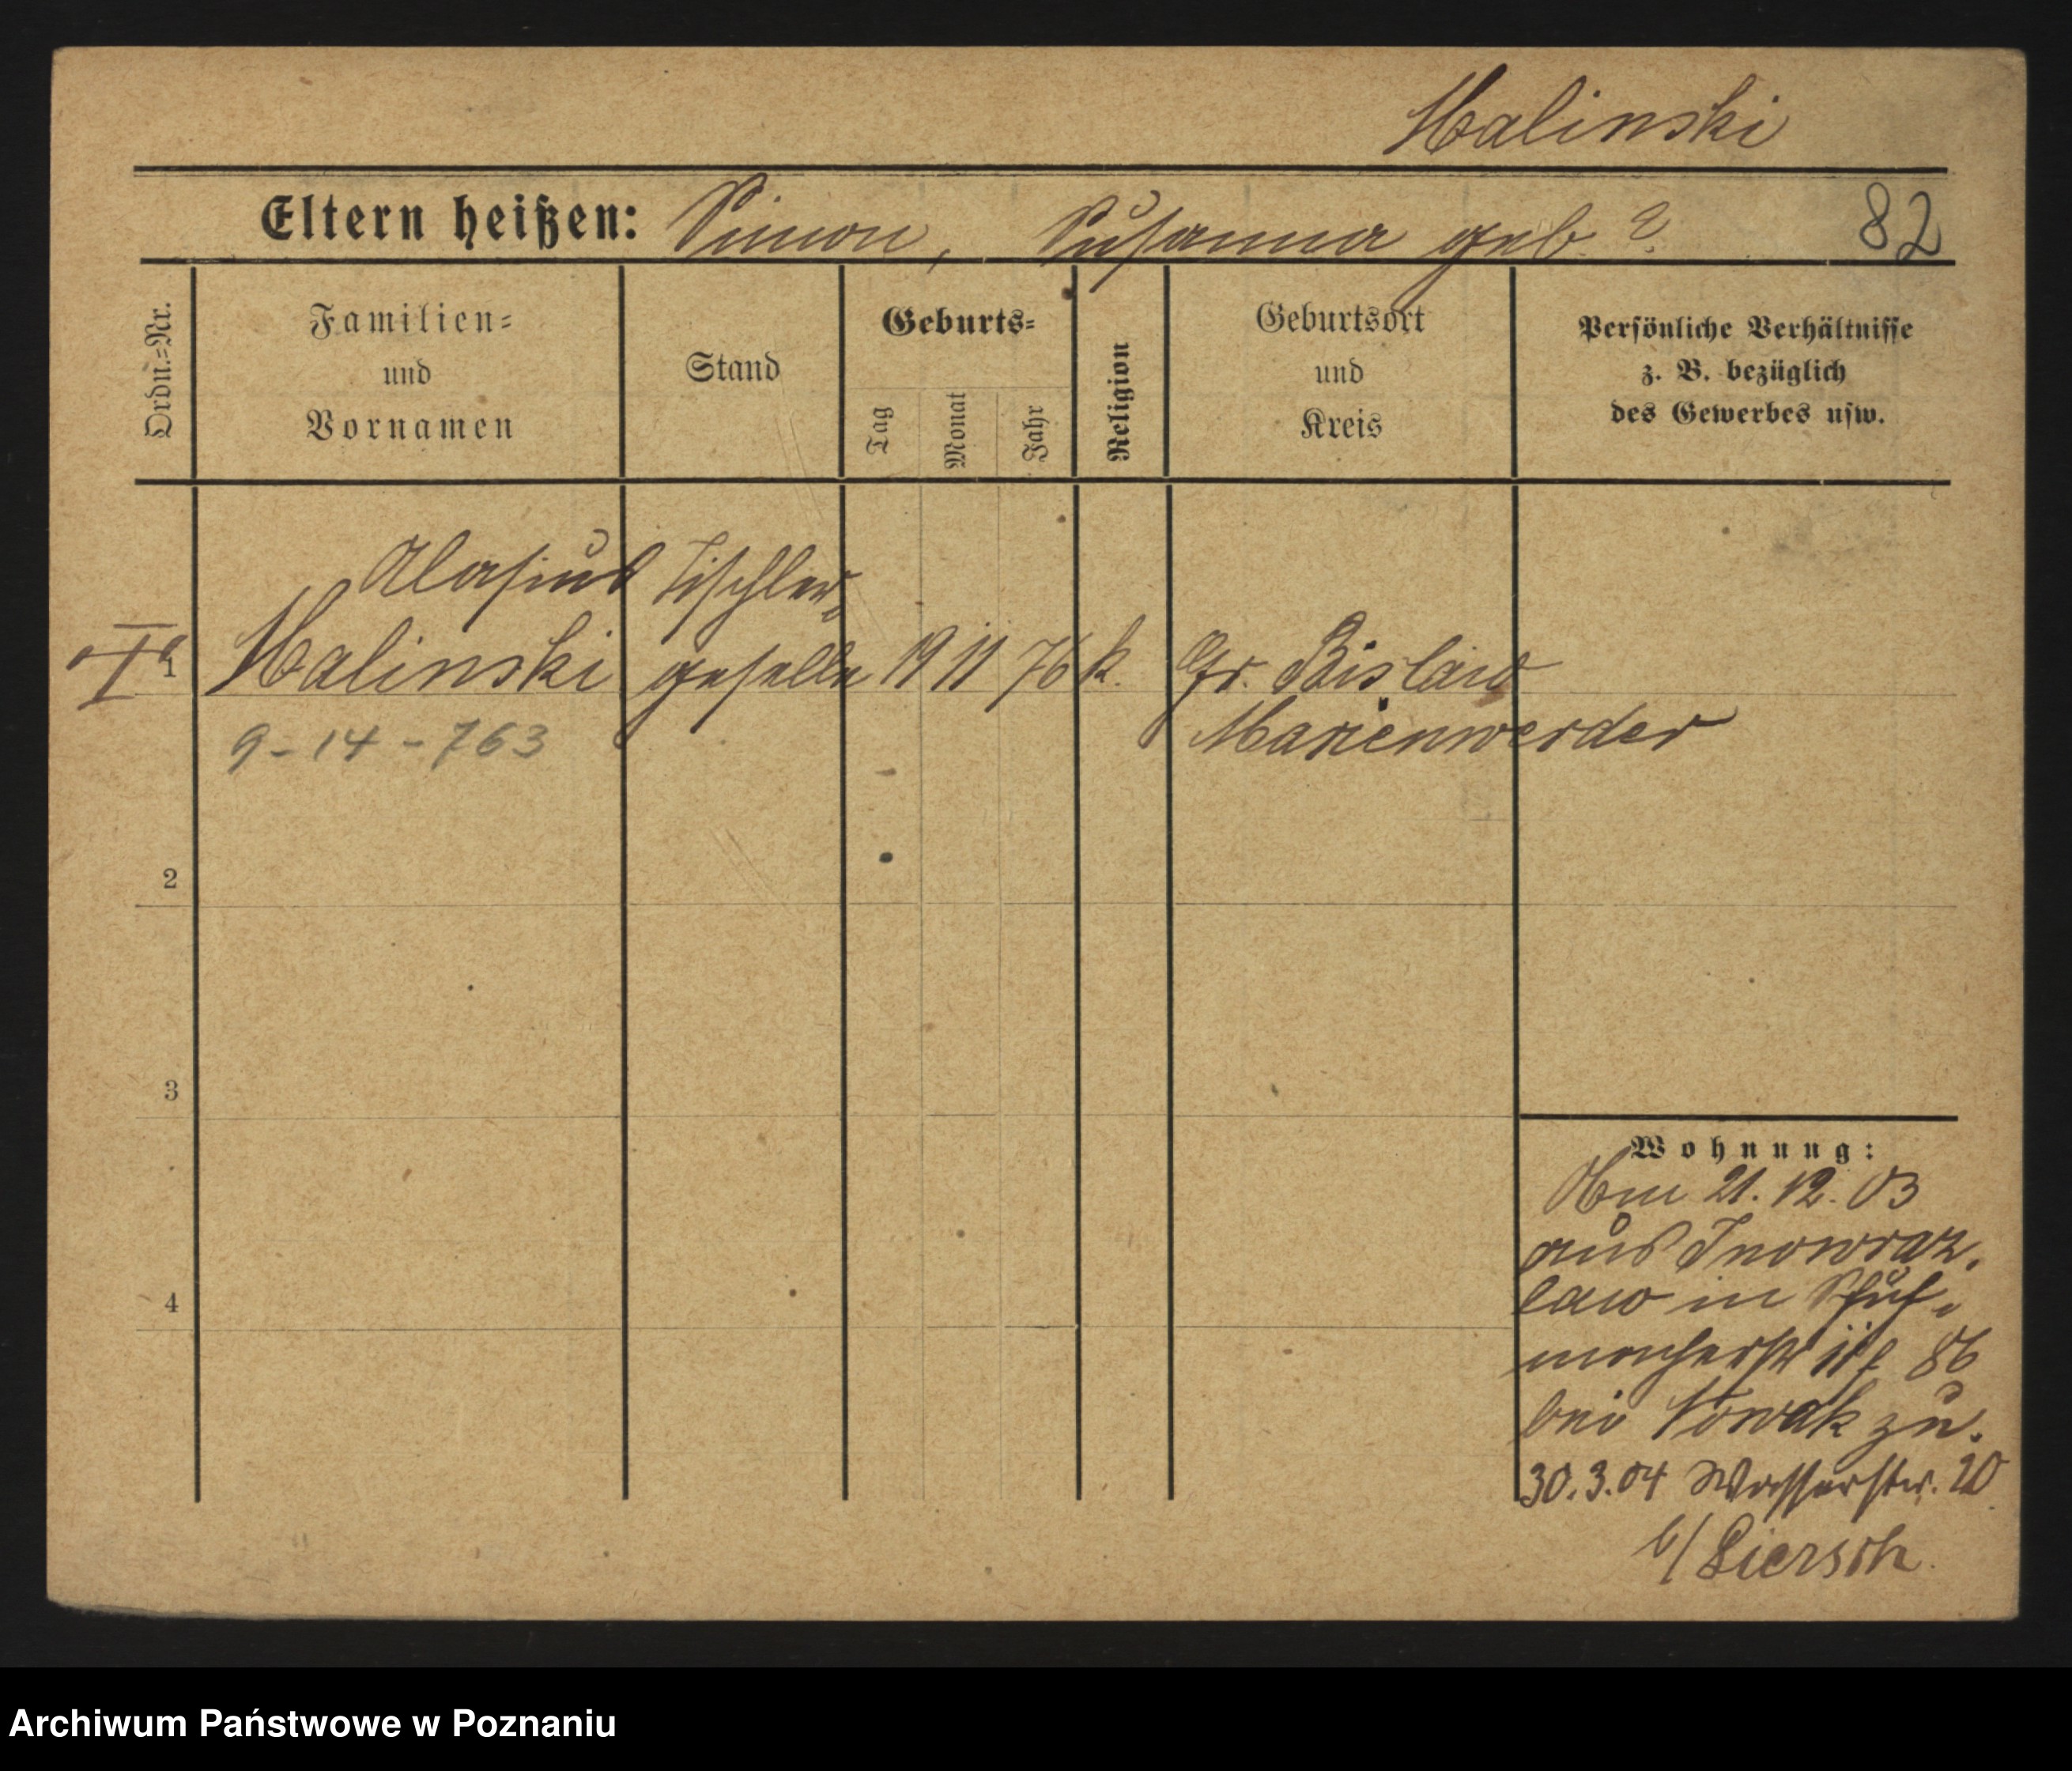 Malinski
Eltern heißen: Simon, Susanna geb. ?
82
Ordn.=Nr.
Familien=
und
Vornamen
Stand
Geburts=
Tag
Monat
Jahr
Religion
Geburtsort
und
Kreis
Persönliche Verhältnisse
z. B. bezüglich
des Gewerbes usw.
Tischler=
1 Malinski geselle 19 11 76 k. Gr. Bislaw
9-14-763 Marienwerder
2
3
4
Wohnung:
21.12.03
aus Inowraz=
law in Schuh=
macherstr 86
bei Nowak zu.
30.3.04 Wasserstr. 20
b/ Liersch.
Archiwum Państwowe w Poznaniu